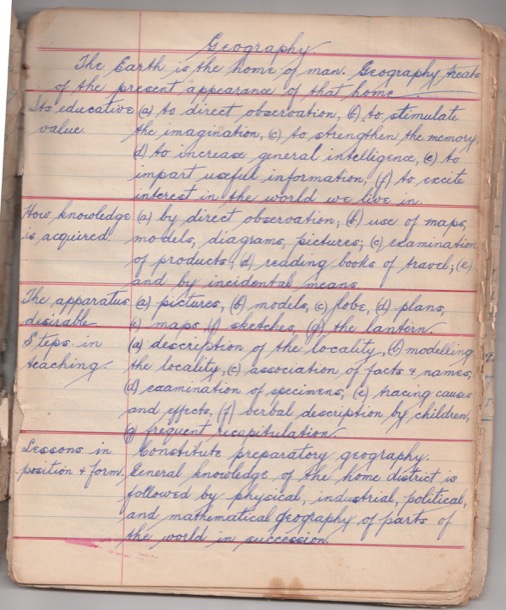 Geography
The Earth is the home of man. Geography treats
of the present appearance of that home
Its educative (a) to direct observation, (b) to stimulate
value. the imagination, (c) to strengthen the memory.
(d) to increase general intelligence, (e) to
impart useful information, (f) to excite
interest in the world we live in.
How knowledge (a) by direct observation; (b) use of maps,
is acquired. models, diagrams, pictures; (c) examination
of products; (d) reading books of travel; (e)
and by incidental means
The apparatus (a) pictures, (b) models, (c) globe, (d) plans,
desirable (e) maps (f) sketches, (g) the lantern.
Steps in (a) description of the locality, (b) modelling
teaching. the locality, (c) association of facts & names;
(d) examination of specimens; (e) tracing causes
and effects, (f) verbal description by children,
(g) frequent recapitulation.
Lessons in Constitute preparatory geography.
position & form. General knowledge of the home district is
followed by physical, industrial, political,
and mathematical geography of parts of
the world in succession.